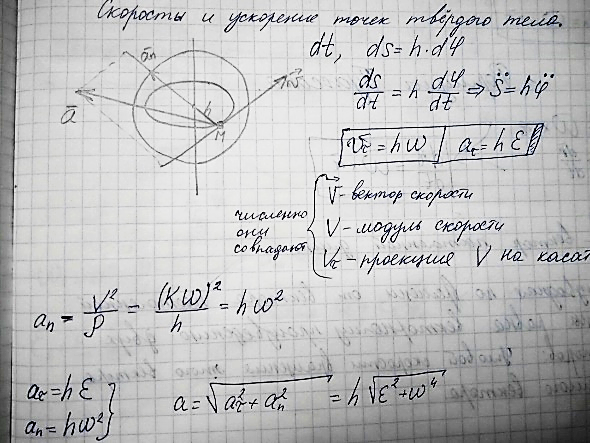 Скорость и ускорение точек твёрдого тела.
dt, ds = h · dφ
ds/dt = h dφ/dt ⇒ S̈ = hφ̈
v_τ = hω | a_τ = hε
ā_n
ā
h
M
численно они совпадают
V⃗ - вектор скорости
V - модуль скорости
V_τ - проекция V на касат
a_n = V²/ρ = (Kω)²/h = hω²
a_τ = hε
a_n = hω²
a = √(a_τ² + a_n²) = h√(ε² + ω⁴)